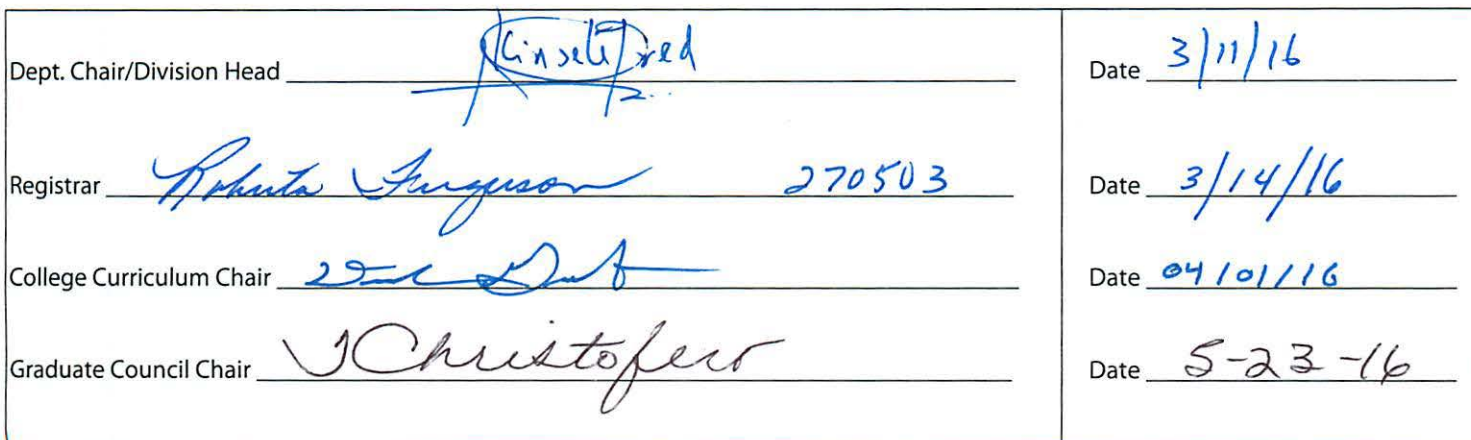 Dept. Chair/Division Head Date 3/11/16
Registrar Roberta Ferguson 270503 Date 3/14/16
College Curriculum Chair Date 04/01/16
Graduate Council Chair Date 5-23-16